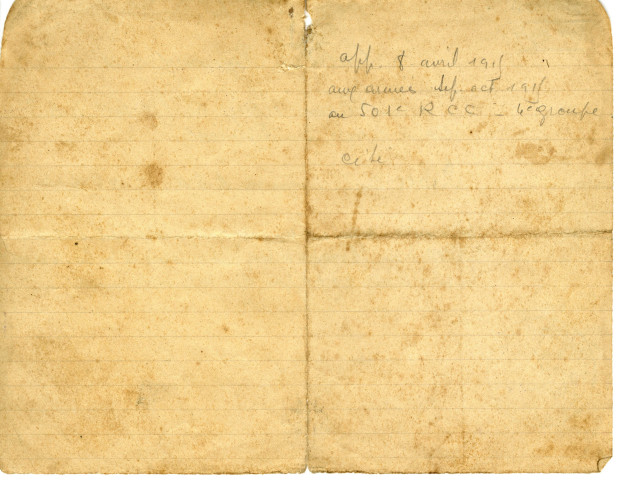 app. 8 avril 191
aux armées dep. oct 191
au 501e R C C - 4e groupe
Cité